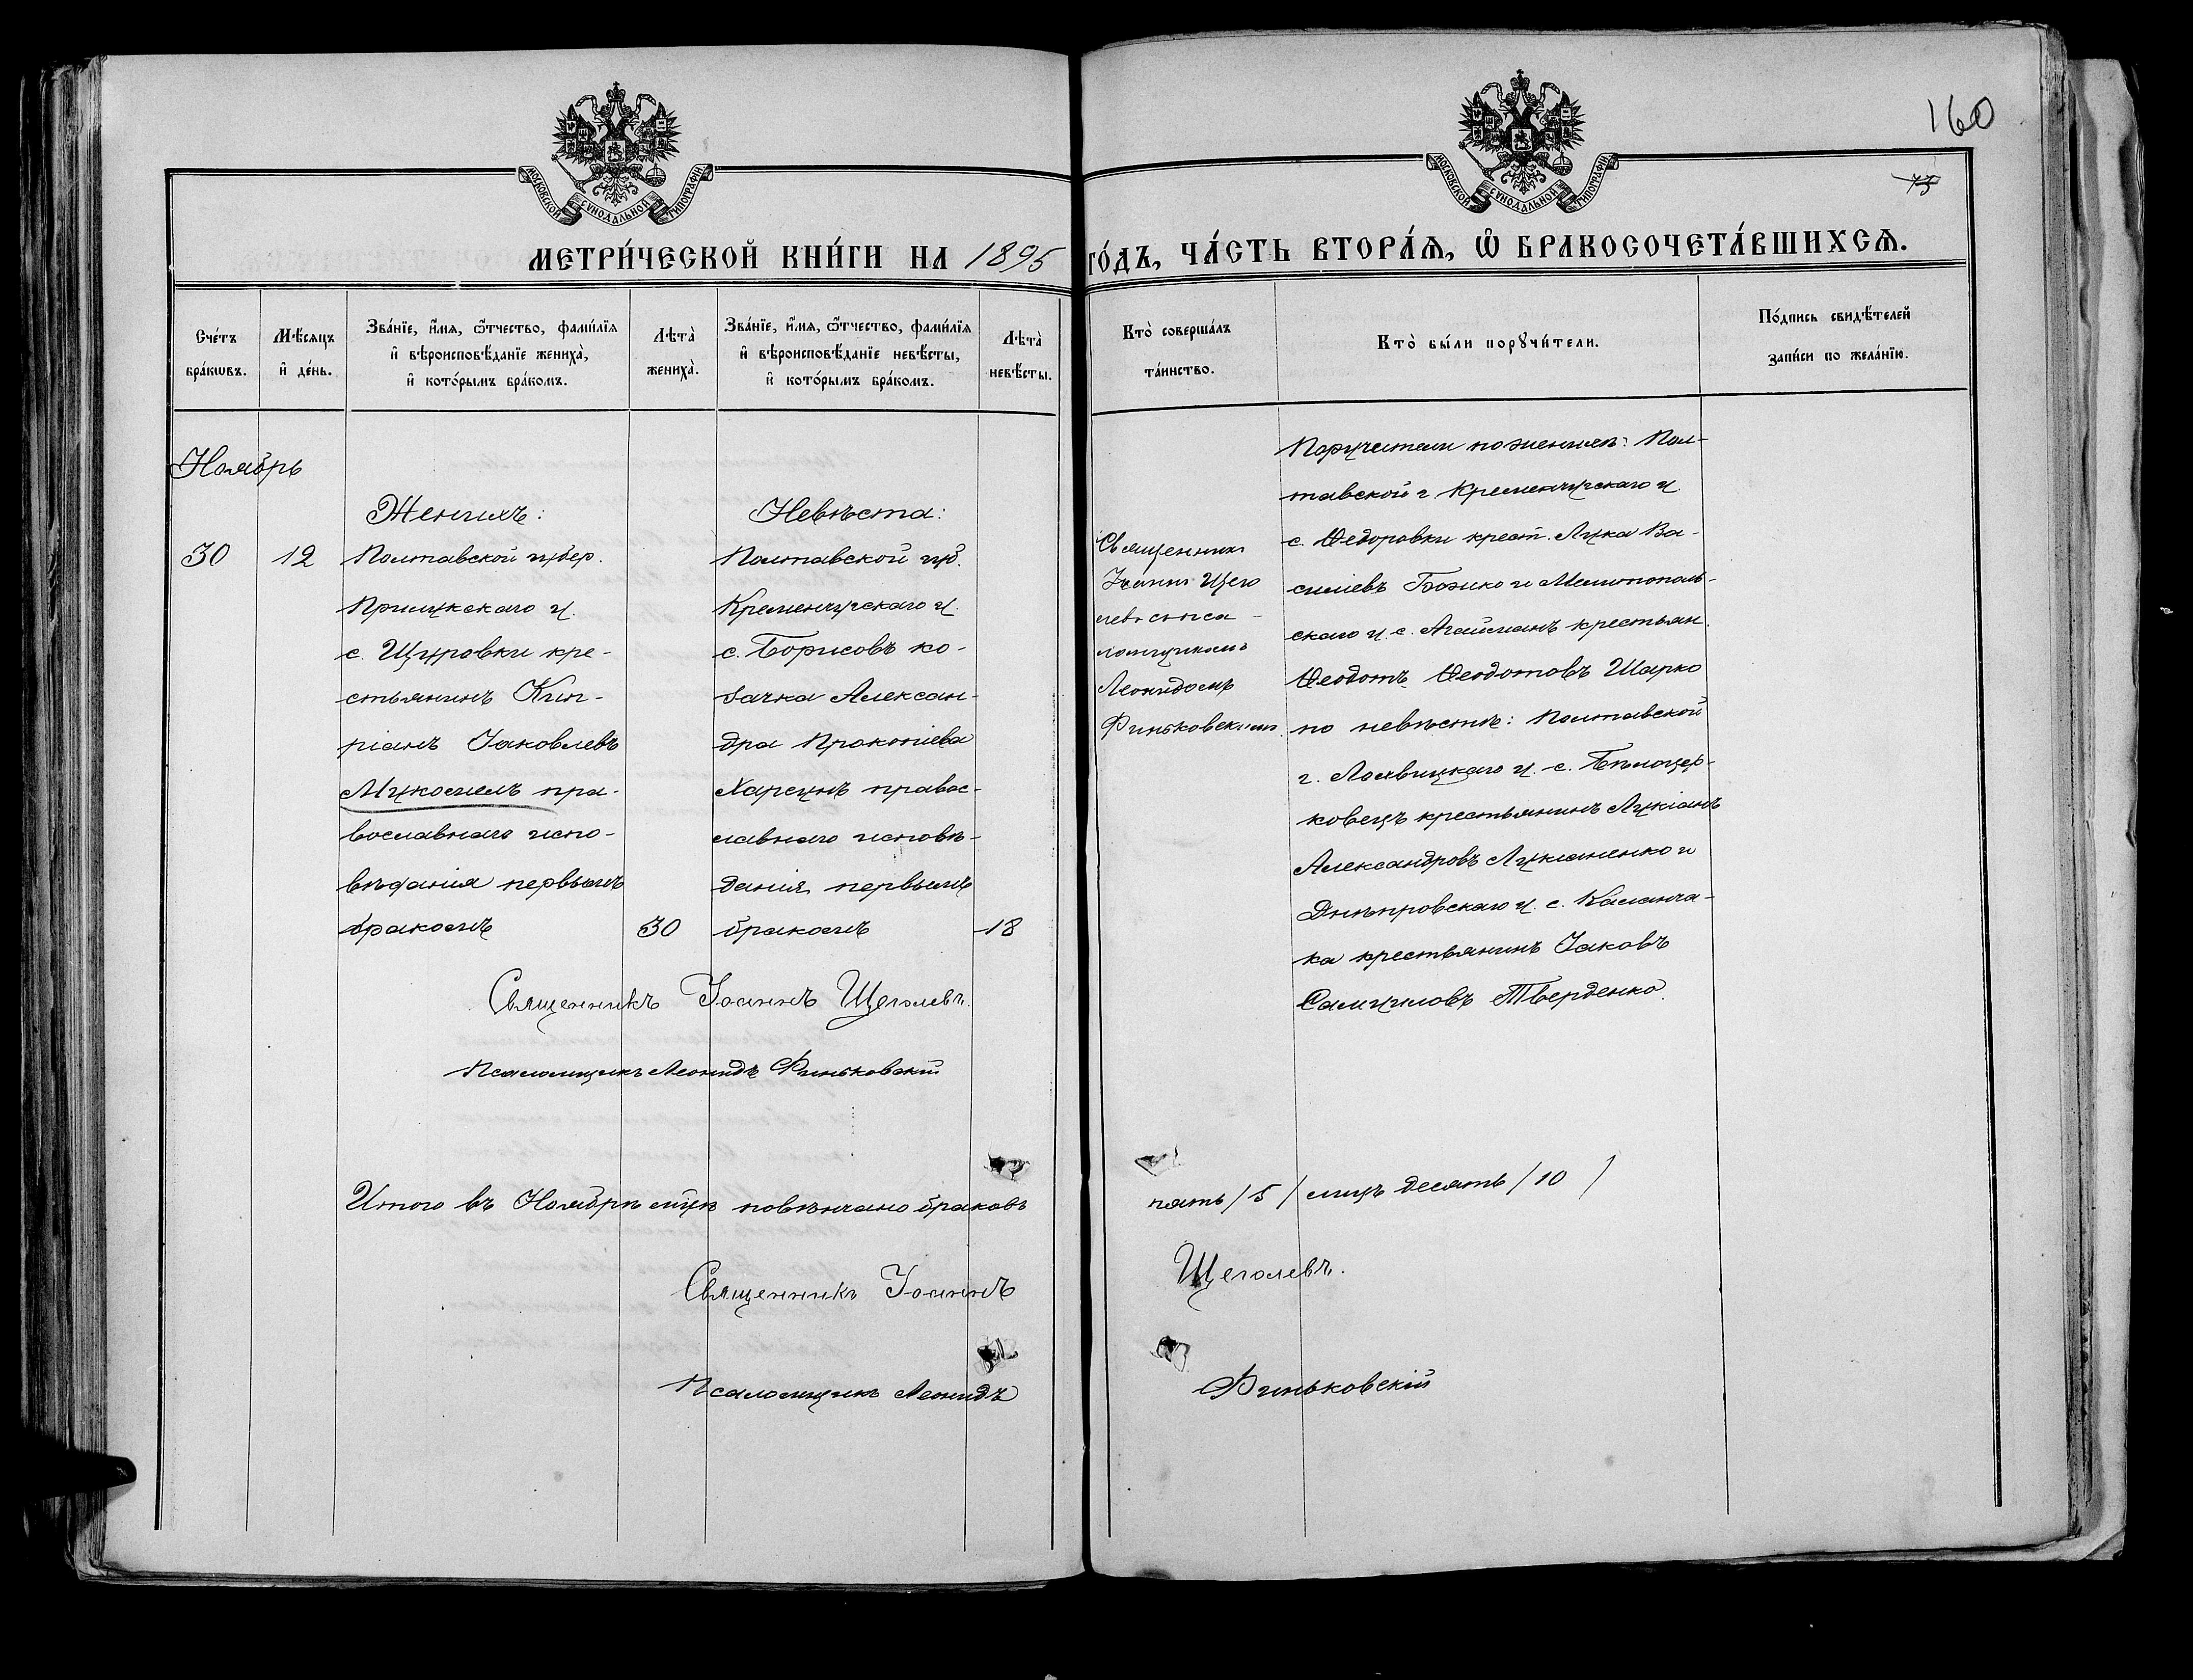 МОСКОВСКОЙ СѴНОДАЛЬНОЙ ТИПОГРАФІИ
МОСКОВСКОЙ СѴНОДАЛЬНОЙ ТИПОГРАФІИ
160
МЕТРИ́ЧЕСКОЙ КНИ́ГИ НА 1895 ГО́ДЪ, ЧА́СТЬ ВТОРА́Ѧ, Ѽ БРАКОСОЧЕТА́ВШИХСѦ.
Сче́тъ бра́кѡвъ.
Мѣ́сѧцъ и҆ де́нь.
Зва́нїе, и҆́мѧ, ѻ҆́тчество, фами́лїѧ
и҆ вѣроисповѣ́данїе жениха̀,
и҆ кото́рымъ бра́комъ.
Лѣта̀ жениха̀.
Зва́нїе, и҆́мѧ, ѻ҆́тчество, фами́лїѧ
и҆ вѣроисповѣ́данїе невѣ́сты,
и҆ кото́рымъ бра́комъ.
Лѣта̀ невѣ́сты.
Кто̀ соверша́лъ
та́инство.
Кто̀ бы́ли порꙋчи́тели.
По́дпись свидѣ́телей
за́писи по жела́нїю.
Ноябрь
30
12
Женихъ:
Полтавской губер.
Прилукскаго у.
с. Щуровки кре-
стьянинъ Кип-
ріанъ Іаковлевъ
Мукосмелъ пра-
вославнаго испо-
вѣданія первымъ
бракомъ
30
Невѣста:
Полтавской губ.
Кременчугскаго у.
с. Борисовъ ко-
зачка Алексан-
дра Прокопіева
Харсунъ правос-
лавнаго исповѣ-
данія первымъ
бракомъ
18
Священникъ Іоаннъ Щеголевъ.
Псаломщикъ Леонидъ Финьковскій
Священник
Іоанн Щего
левъ съ пса-
ломщикомъ
Леонидомъ
Финьковскимъ.
Поручители по женихѣ: Пол-
тавской г. Кременчугскаго у.
с. Ѳедоровки крест. Лука Ва-
силіевъ Божко и Мелитополь-
скаго у. с. Агайманъ крестьян.
Ѳеодотъ Ѳеодотовъ Шарко
по невѣстѣ: Полтавской
г. Лохвицкаго у. с. Бѣлоцер-
ковецъ крестьянинъ Лукіанъ
Александровъ Лукіаненко и
Днѣпровскаго у. с. Каланча-
ка крестьянинъ Іаковъ
Самуиловъ Тверденко.
Итого въ Ноябрѣ мцѣ повѣнчано браковъ пять /5/ лицъ десять /10/
Священникъ Іоаннъ Щеголевъ.
Псаломщикъ Леонидъ Финьковскій